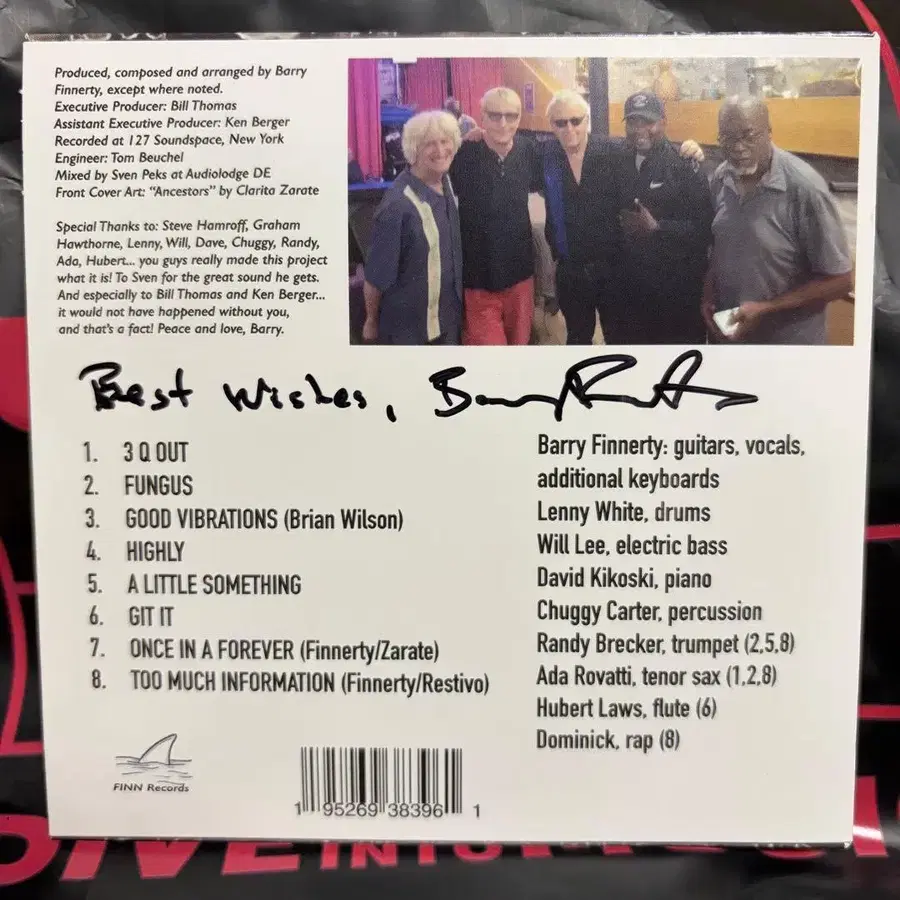 Produced, composed and arranged by Barry
Finnerty, except where noted.
Executive Producer: Bill Thomas
Assistant Executive Producer: Ken Berger
Recorded at 127 Soundspace, New York
Engineer: Tom Beuchel
Mixed by Sven Peks at Audiolodge DE
Front Cover Art: "Ancestors" by Clarita Zarate
Special Thanks to: Steve Hamroff, Graham
Hawthorne, Lenny, Will, Dave, Chuggy, Randy,
Ada, Hubert... you guys really made this project
what it is! To Sven for the great sound he gets.
And especially to Bill Thomas and Ken Berger...
it would not have happened without you,
and that's a fact! Peace and love, Barry.
Best Wishes,
1. 3 Q OUT
2. FUNGUS
3. GOOD VIBRATIONS (Brian Wilson)
4. HIGHLY
5. A LITTLE SOMETHING
6. GIT IT
7. ONCE IN A FOREVER (Finnerty/Zarate)
8. TOO MUCH INFORMATION (Finnerty/Restivo)
Barry Finnerty: guitars, vocals,
additional keyboards
Lenny White, drums
Will Lee, electric bass
David Kikoski, piano
Chuggy Carter, percussion
Randy Brecker, trumpet (2,5,8)
Ada Rovatti, tenor sax (1,2,8)
Hubert Laws, flute (6)
Dominick, rap (8)
FINN Records
1 95269 38396 1
INTO